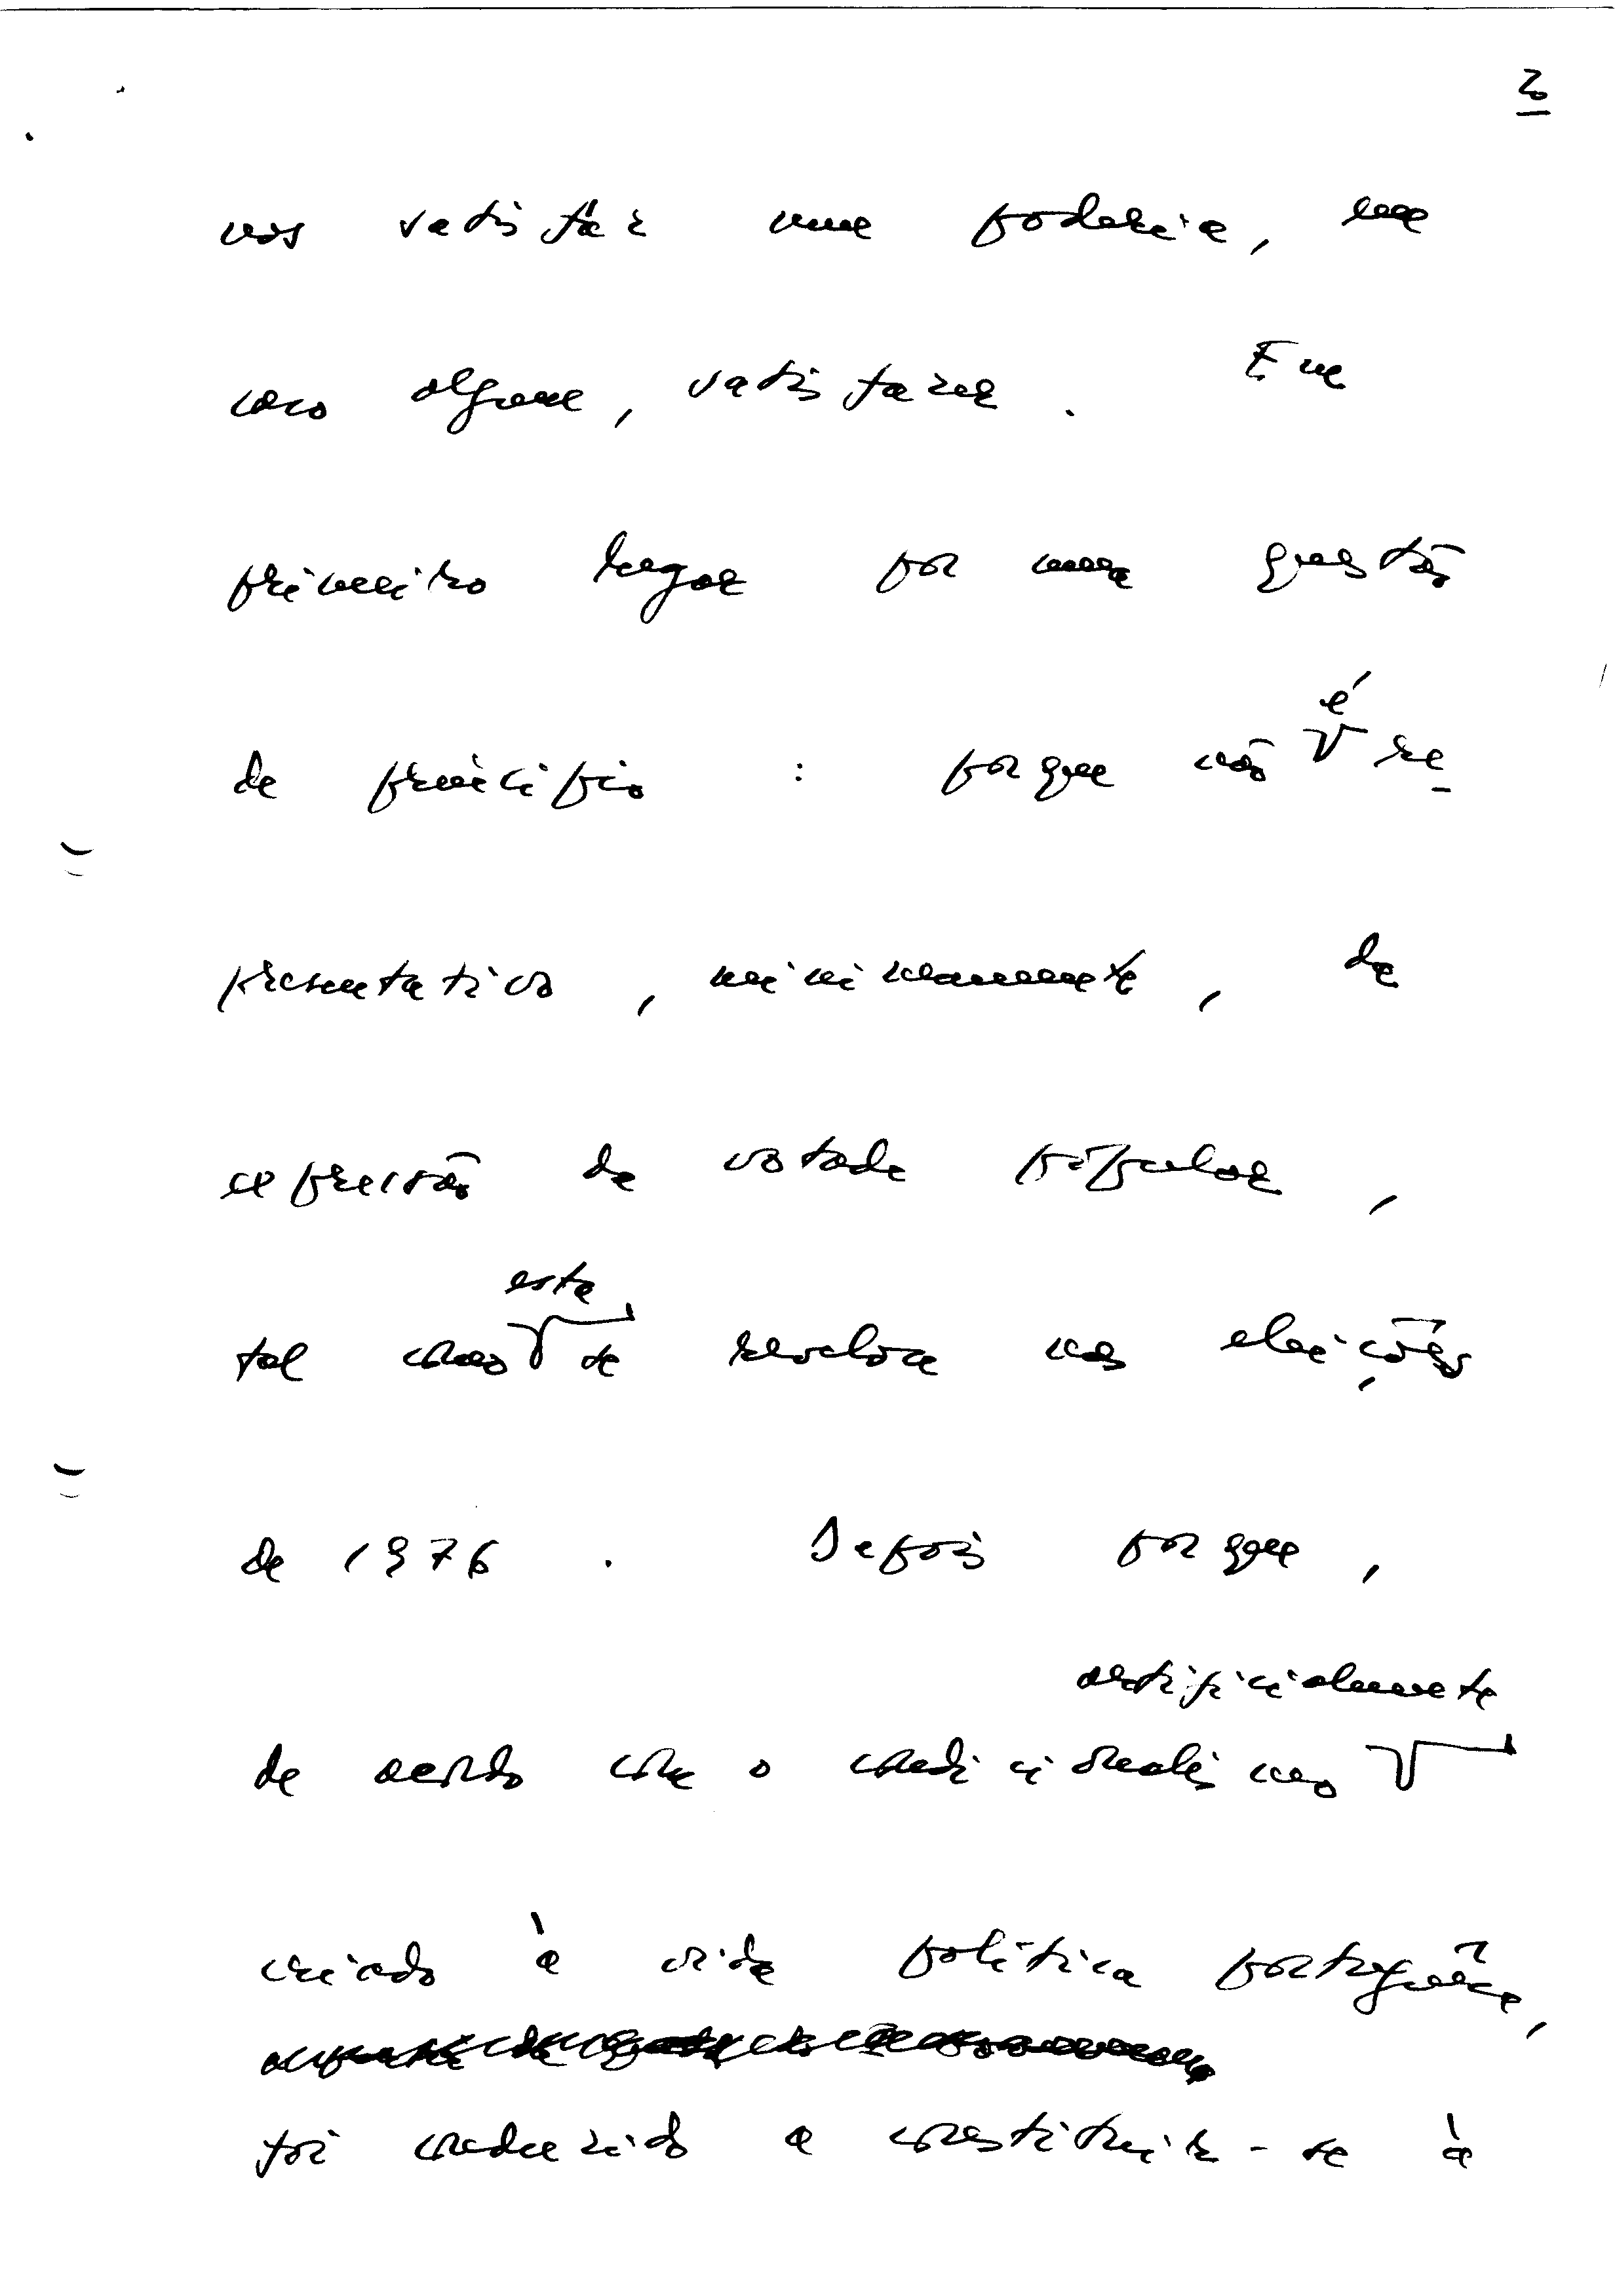 2.
nos satisfaz nem poderia, em
caso algum, satisfazer. Em
primeiro lugar por uma questão
é
de princípio : porque não re-
presentativo, minimamente, da
expressão da vontade popular,
esta
tal como se revelou nas eleições
de 1976. Depois porque,
artificialmente
de acordo com o condicionalismo
criado à vida política portuguesa,
foi conduzido a constituir-se à